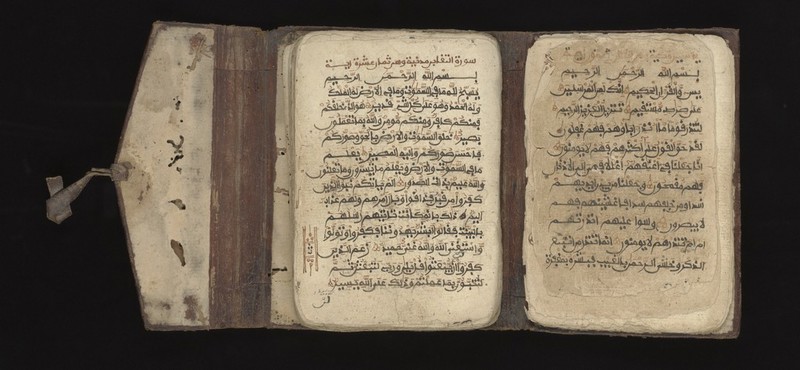 بسم الله الرحمن الرحيم
يس والقرءان الحكيم إنك لمن المرسلين
على صرط مستقيم تنزيل العزيز الرحيم
لتنذر قوما ما أنذر ءاباؤهم فهم غفلون
لقد حق القول على أكثرهم فهم لا يومنون
إنا جعلنا في أعنقهم أغللا فهي إلى الأذقان
فهم مقمحون وجعلنا من بين أيديهم
سدا ومن خلفهم سدا فأغشينهم فهم
لا يبصرون وسواء عليهم ءانذرتهم
أم لم تنذرهم لا يومنون إنما تنذر من اتبع
الذكر وخشي الرحمن بالغيب فبشره بمغفرة
سورة التغابن مدنية وهي ثمان عشرة ءاية
بسم الله الرحمن الرحيم
يسبح لله ما في السموت وما في الأرض له الملك
وله الحمد وهو على كل شيء قدير هو الذي خلقكم
فمنكم كافر ومنكم مومن والله بما تعملون
بصير خلق السموت والأرض بالحق وصوركم
فأحسن صوركم وإليه المصير يعلم
ما في السموت والأرض ويعلم ما تسرون وما تعلنون
والله عليم بذات الصدور ألم ياتكم نبؤا الذين
كفروا من قبل فذاقوا وبال أمرهم ولهم عذاب
أليم ذلك بأنه كانت تاتيهم رسلهم
بالبينت فقالوا أبشر يهدوننا فكفروا وتولوا
واستغنى الله والله غني حميد زعم الذين
كفروا أن لن يبعثوا قل بلى وربي لتبعثن ثم
لتنبؤن بما عملتم وذلك على الله يسير